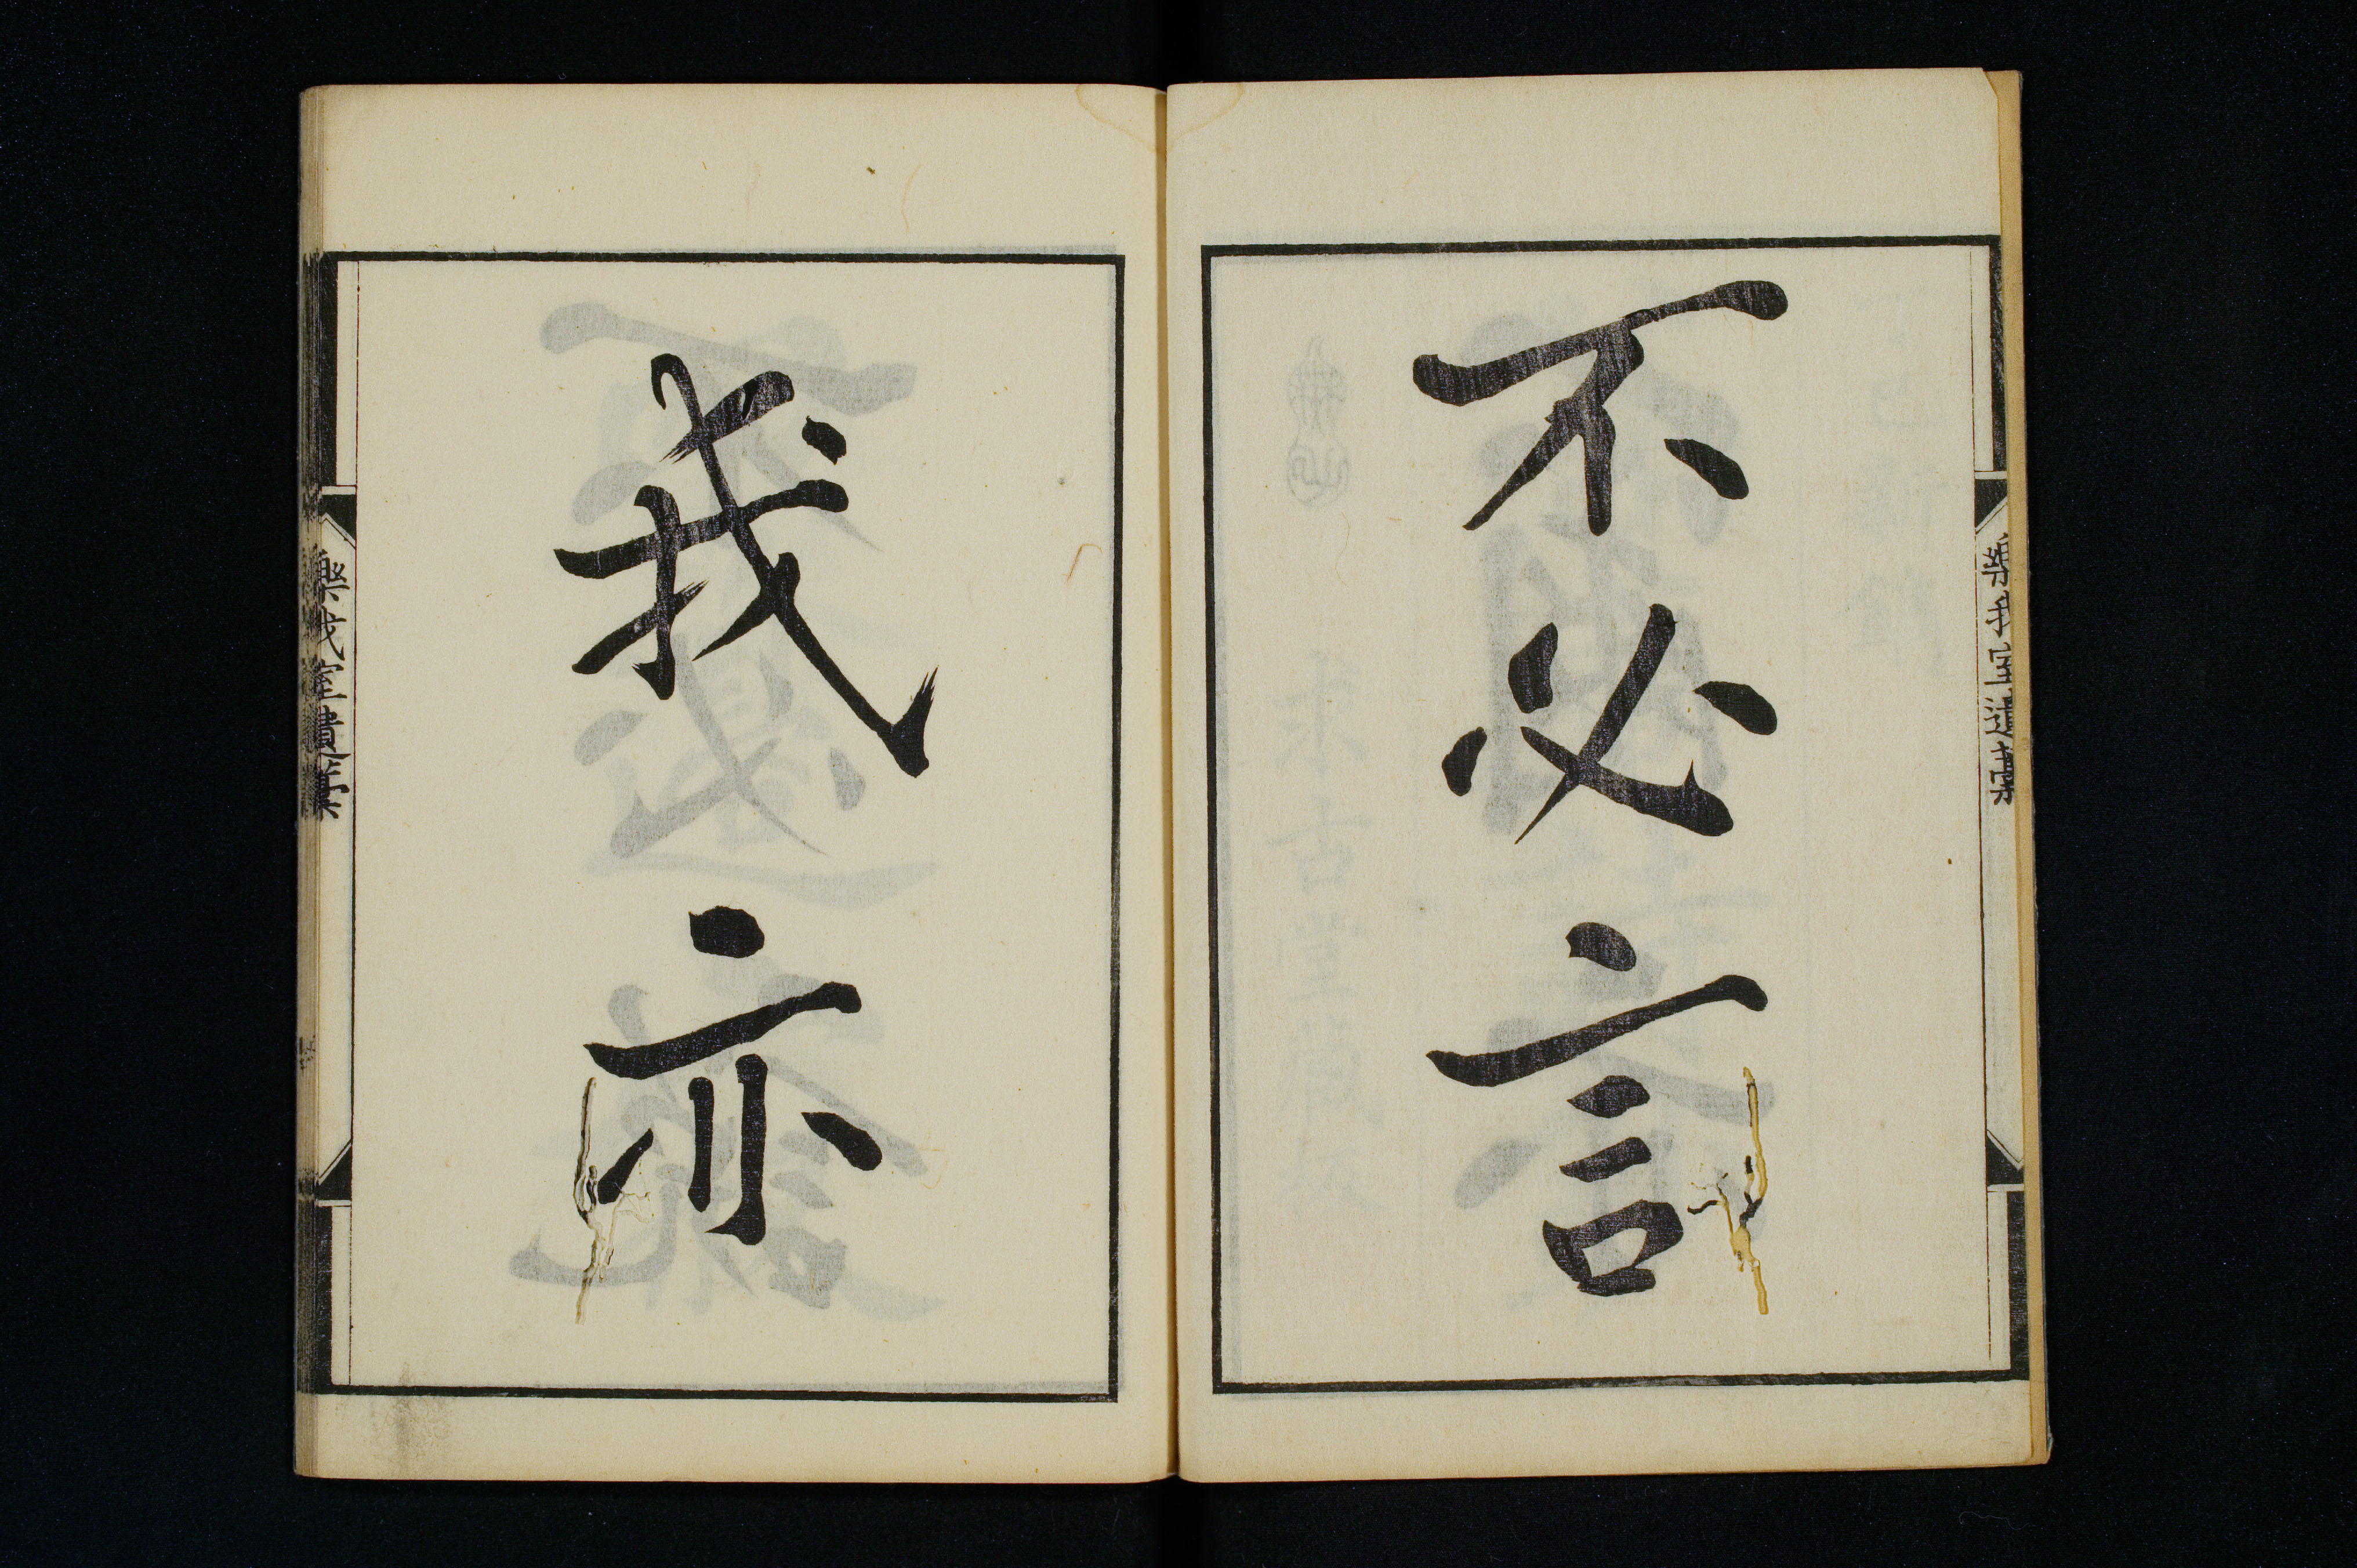 不必言
我亦
樂我室遺稾
樂我室遺稾